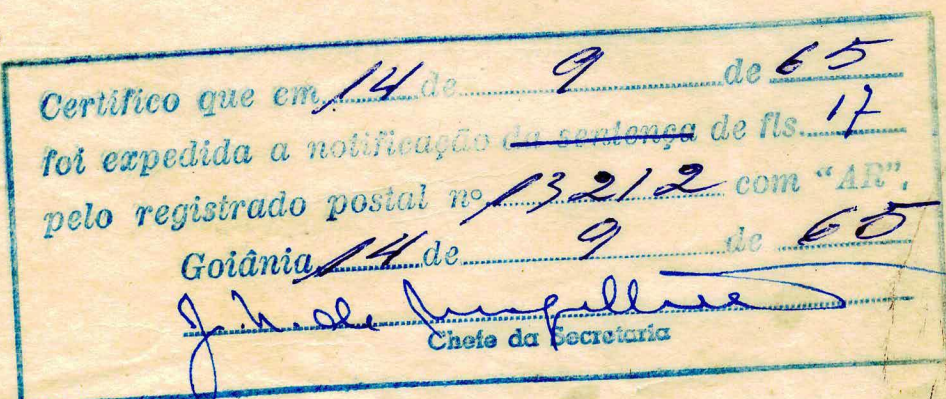 Certifico que em 14 de 9 de 65
foi expedida a notificação da sentença de fls. 17
pelo registrado postal nº 13212 com "AR".
Goiânia 14 de 9 de 65
Chefe da Secretaria